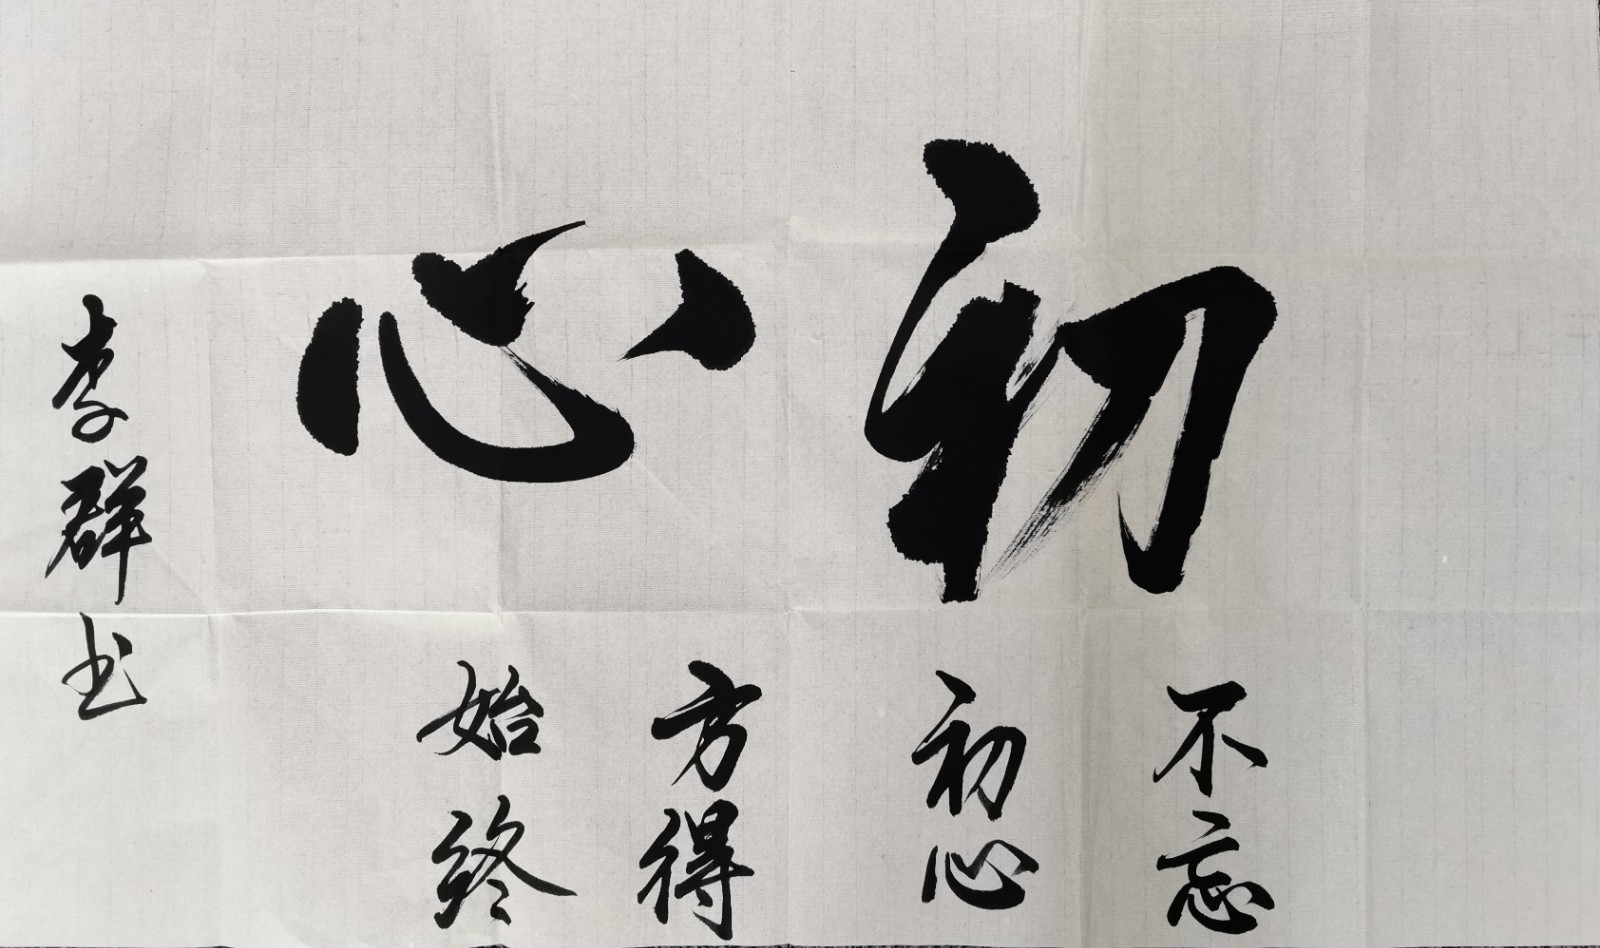 初心
不忘
初心
方得
始终
李群书